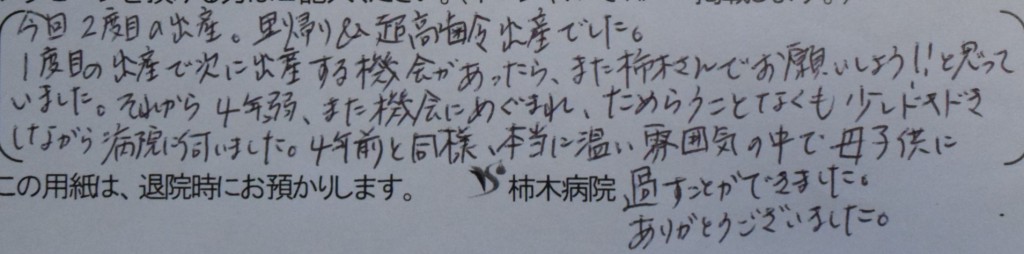 今回2度目の出産。里帰り&超高齢出産でした。
1度目の出産で次に出産する機会があったら、また柿木さんでお願いしよう!!と思って
いました。それから4年弱、また機会にめぐまれ、ためらうことなくも少しドキドキ
しながら病院に伺いました。4年前と同様、本当に温い雰囲気の中で母子供に
この用紙は、退院時にお預かりします。 VS 柿木病院
過すことができました。
ありがとうございました。